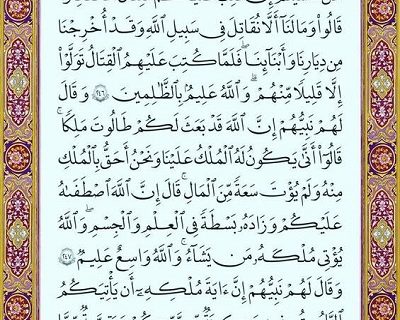 قَالُوا۟ وَمَا لَنَآ أَلَّا نُقَٰتِلَ فِى سَبِيلِ ٱللَّهِ وَقَدْ أُخْرِجْنَا
مِن دِيَٰرِنَا وَأَبْنَآئِنَا ۖ فَلَمَّا كُتِبَ عَلَيْهِمُ ٱلْقِتَالُ تَوَلَّوْا۟
إِلَّا قَلِيلًا مِّنْهُمْ ۗ وَٱللَّهُ عَلِيمٌۢ بِٱلظَّٰلِمِينَ ٢٤٦ وَقَالَ
لَهُمْ نَبِيُّهُمْ إِنَّ ٱللَّهَ قَدْ بَعَثَ لَكُمْ طَالُوتَ مَلِكًا ۚ
قَالُوٓا۟ أَنَّىٰ يَكُونُ لَهُ ٱلْمُلْكُ عَلَيْنَا وَنَحْنُ أَحَقُّ بِٱلْمُلْكِ
مِنْهُ وَلَمْ يُؤْتَ سَعَةً مِّنَ ٱلْمَالِ ۚ قَالَ إِنَّ ٱللَّهَ ٱصْطَفَىٰهُ
عَلَيْكُمْ وَزَادَهُۥ بَسْطَةً فِى ٱلْعِلْمِ وَٱلْجِسْمِ ۖ وَٱللَّهُ
يُؤْتِى مُلْكَهُۥ مَن يَشَآءُ ۚ وَٱللَّهُ وَٰسِعٌ عَلِيمٌ ٢٤٧
وَقَالَ لَهُمْ نَبِيُّهُمْ إِنَّ ءَايَةَ مُلْكِهِۦٓ أَن يَأْتِيَكُمُ